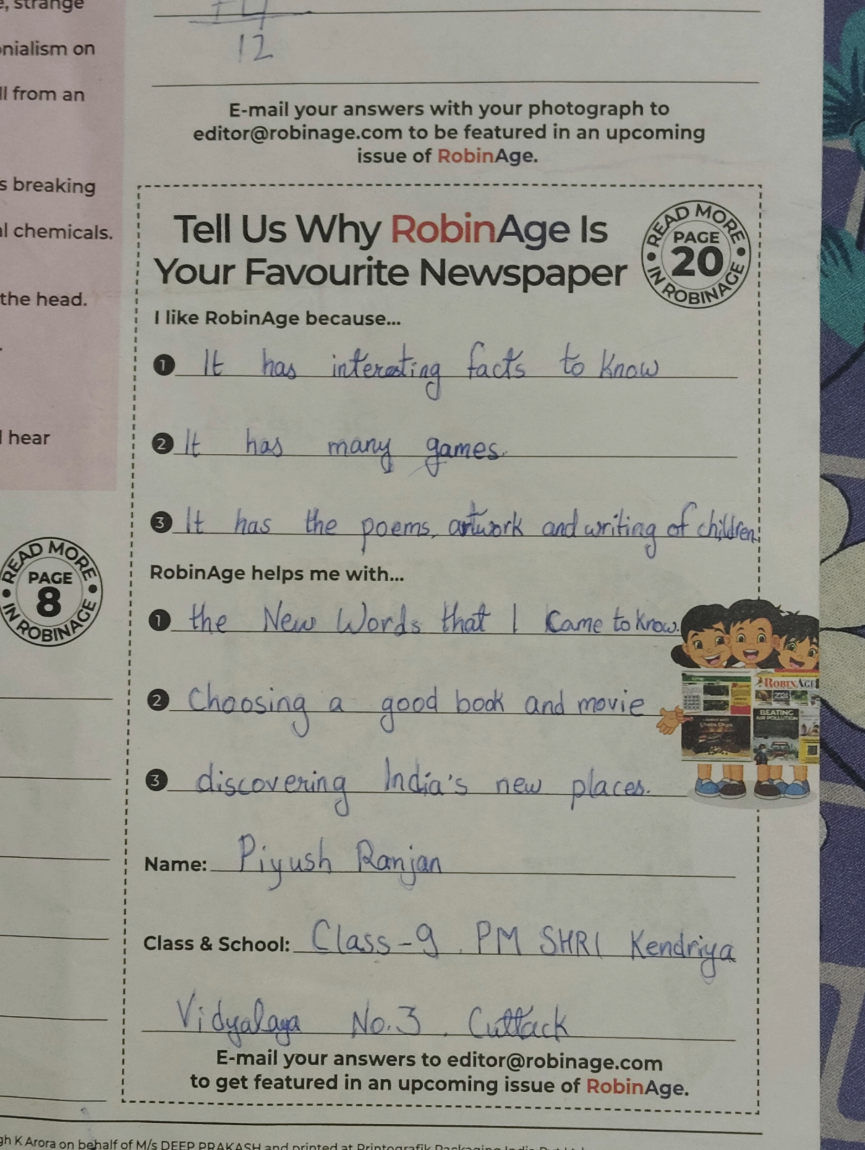 , strange
nialism on
ll from an
s breaking
l chemicals.
the head.
hear
READ MORE
PAGE
8
IN ROBINAGE
12
E-mail your answers with your photograph to
editor@robinage.com to be featured in an upcoming
issue of RobinAge.
Tell Us Why RobinAge Is
Your Favourite Newspaper
READ MORE
PAGE
20
IN ROBINAGE
I like RobinAge because...
1 It has interesting facts to know
2 It has many games.
3 It has the poems, artwork and writing of children.
RobinAge helps me with...
1 the New Words that I came to know.
2 Choosing a good book and movie
3 discovering India's new places.
ROBINAGE
BEATING
AIR POLLUTION
Name: Piyush Ranjan
Class & School: Class-9, PM SHRI Kendriya
Vidyalaya No.3, Cuttack
E-mail your answers to editor@robinage.com
to get featured in an upcoming issue of RobinAge.
gh K Arora on behalf of M/s DEEP PRAKASH and printed at Printografik Packaging India